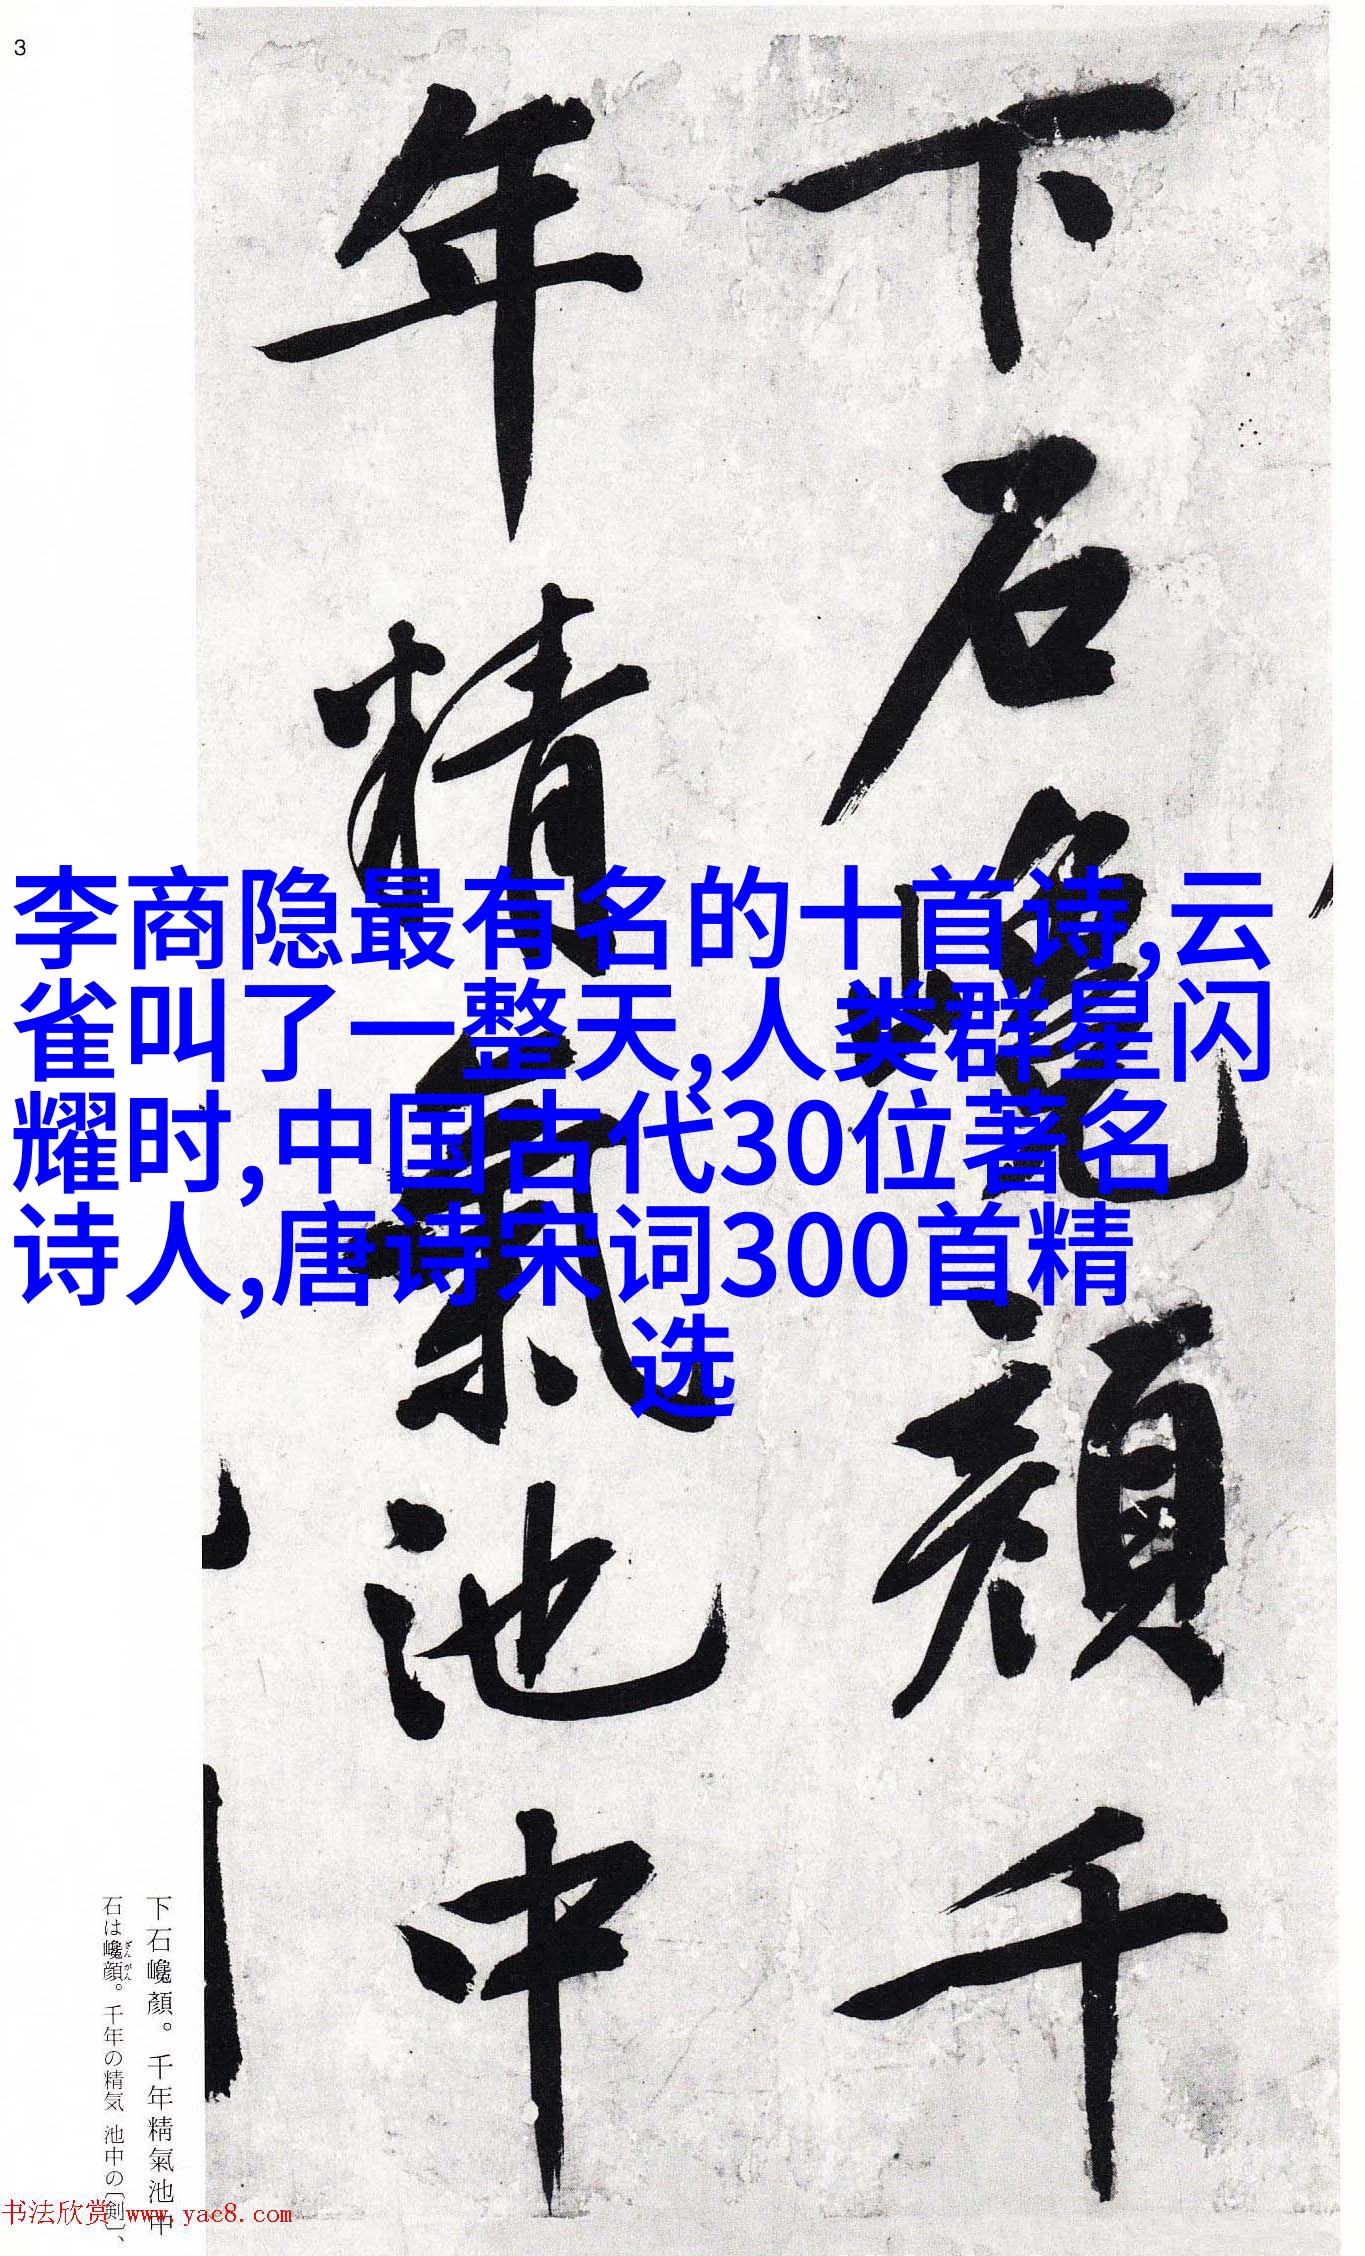 3
下石巉顔千
年精氣池中
李商隐最有名的十首诗,云
雀叫了一整天,人类群星闪
耀时,中国古代30位著名
诗人,唐诗宋词300首精
选
下石巉顔。千年精氣池中
石は巉顔。千年の精気 池中の〔剣〕、
ざん がん
书法欣赏 www.yac8.com